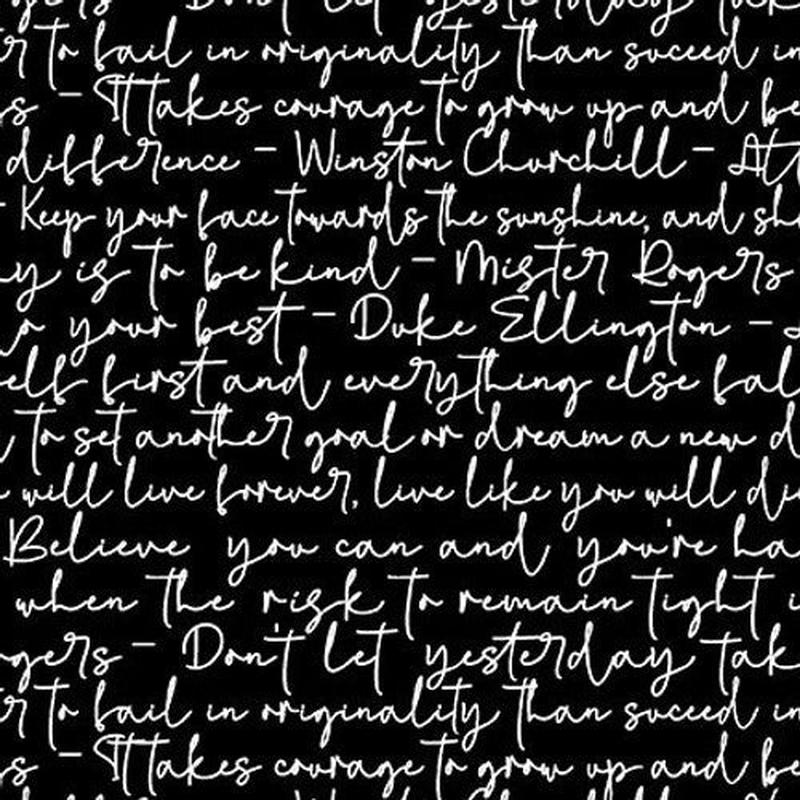 Don't let yesterday
to fail in originality than suceed in
- "Takes courage to grow up and be
difference - Winston Churchill -
Keep your face towards the sunshine, and
is to be kind - Mister Rogers
your best - Duke Ellington -
first and everything else
to set another goal or dream a new
will live forever, live like you will
Believe you can and you're
when the risk to remain tight
- Don't let yesterday
to fail in originality than suceed in
- "Takes courage to grow up and be